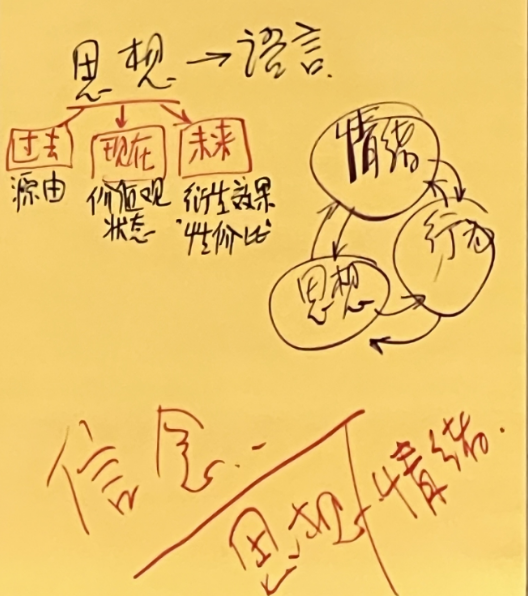 思想→语言
过去 现在 未来
源由 价值观 衍生效果
状态 "性价比"
情绪
行为
思想
信念
思想 情绪